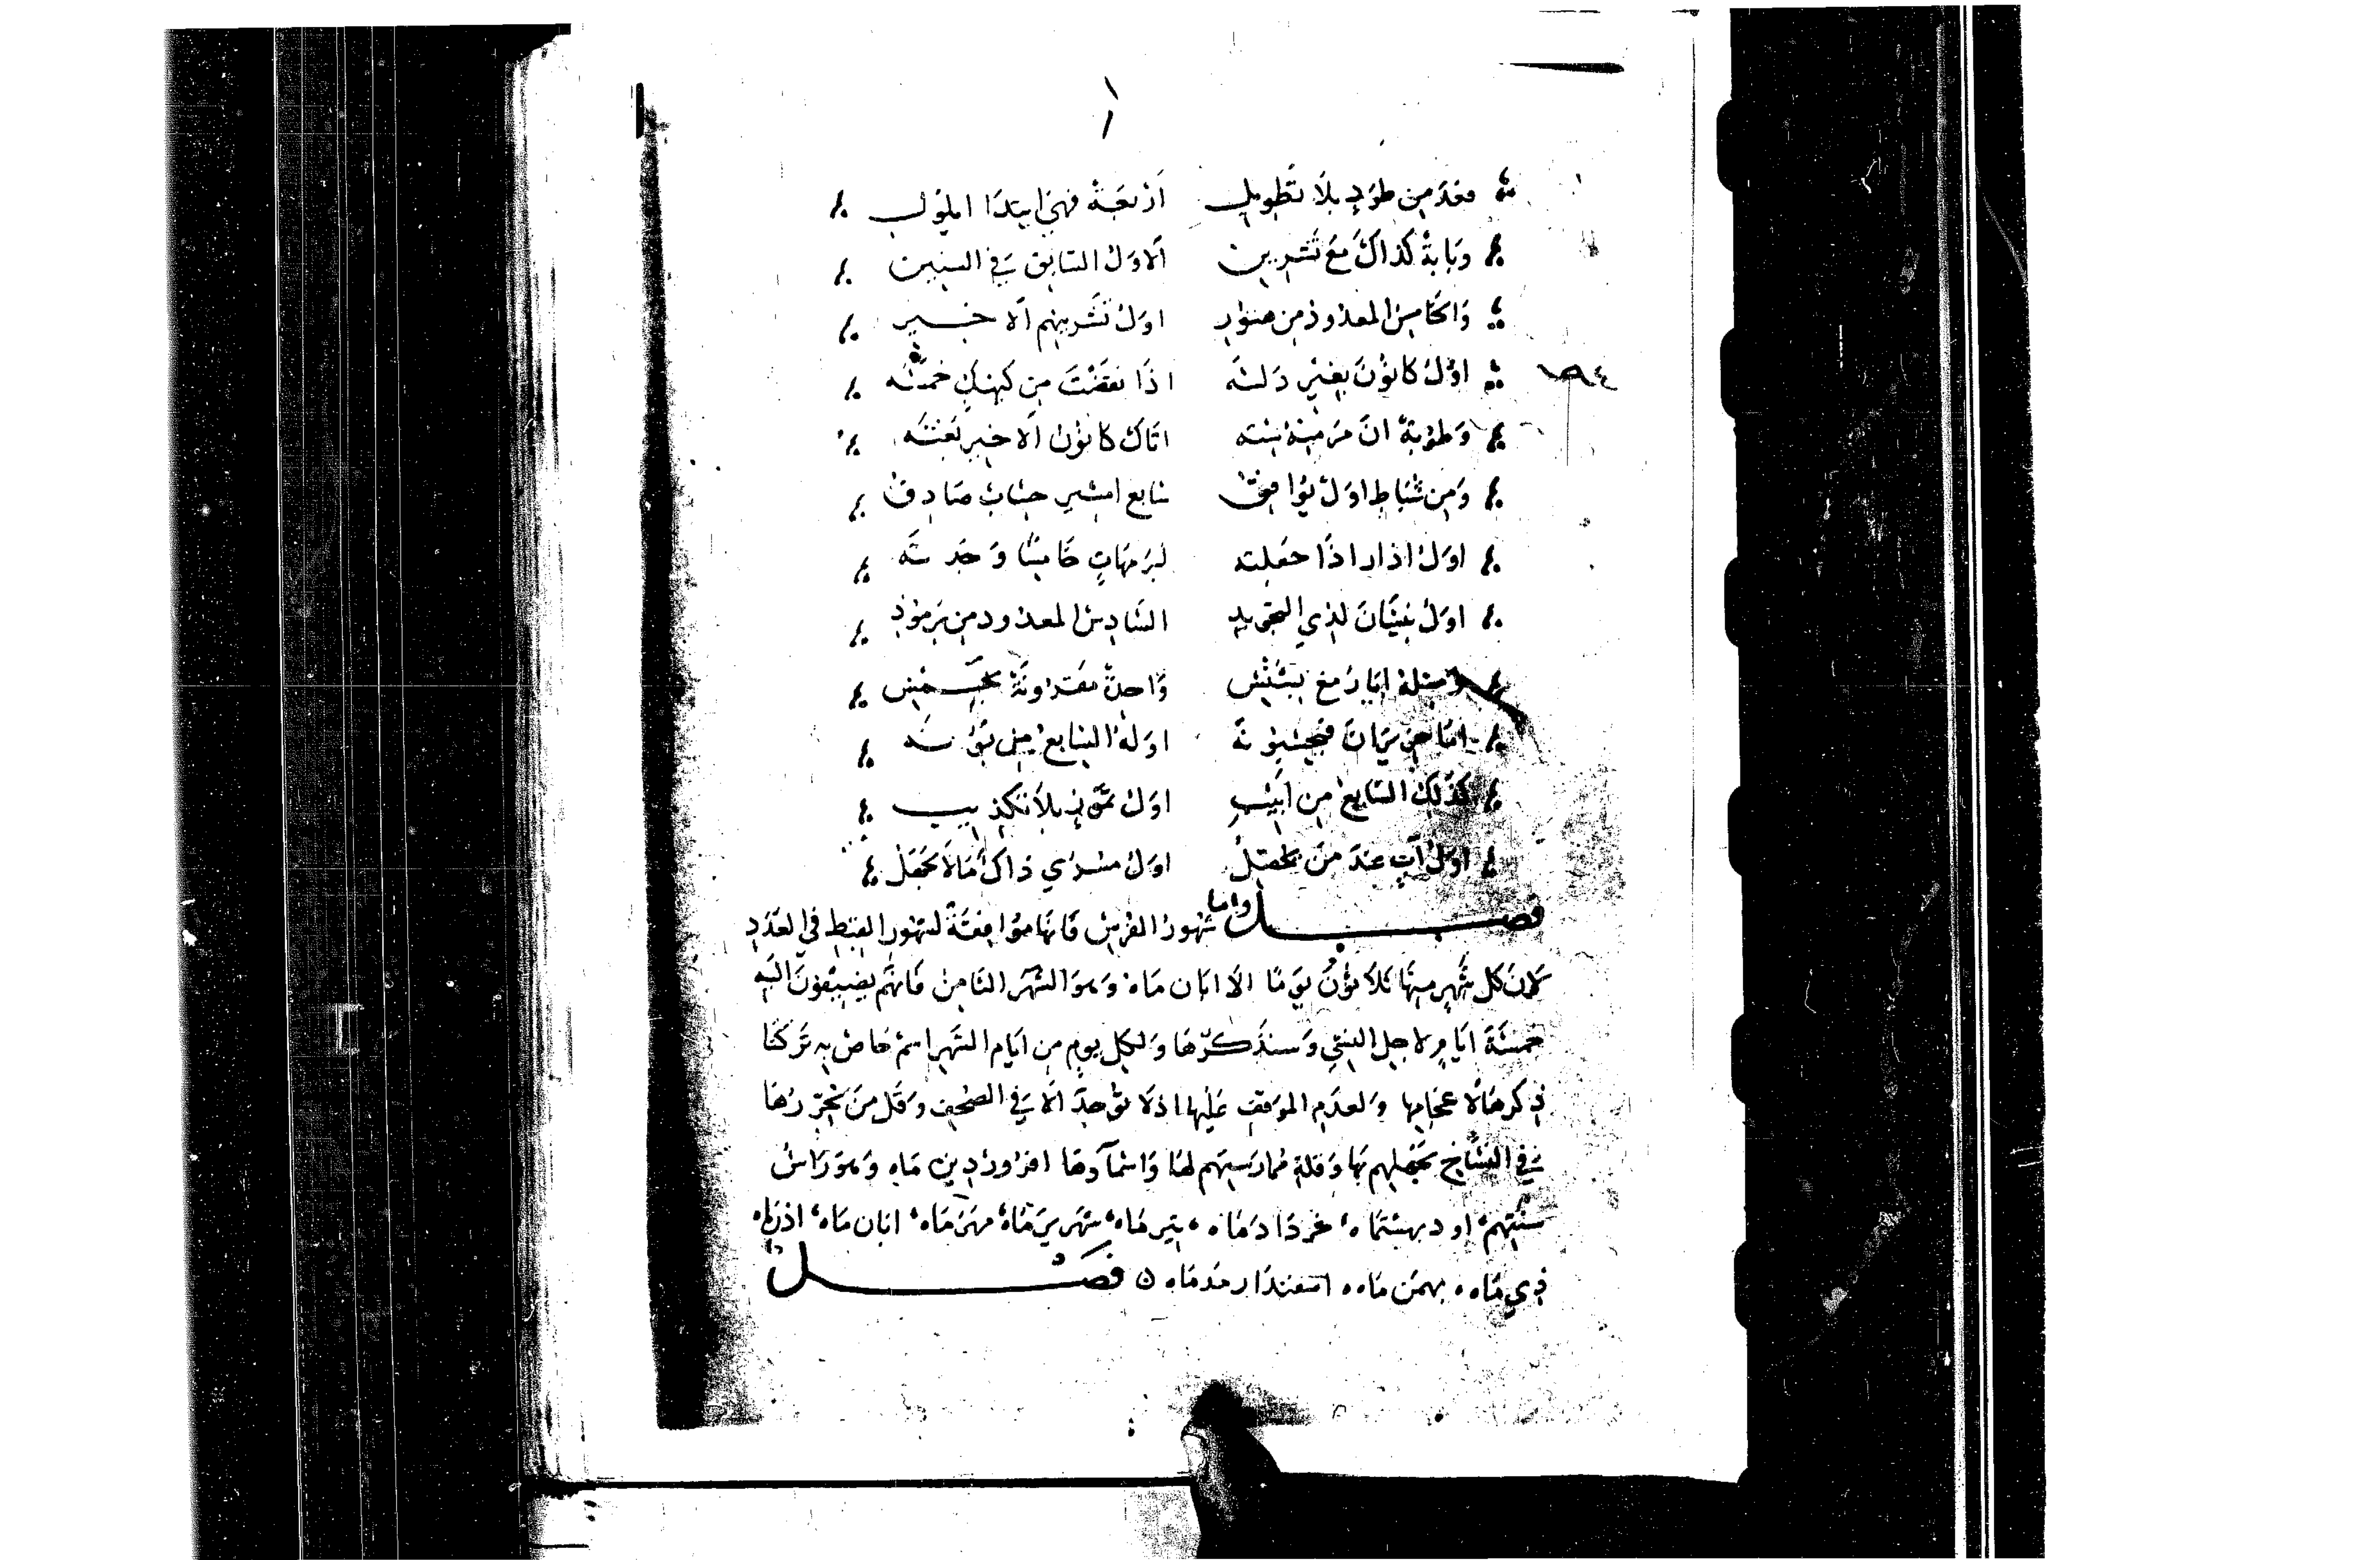 فعد من طود بلا تطويل اربعة فهي ابتدا ايلول
وبابة كذاك مع تشرين الاول السابق في السنين
والخامس المعدود من هتور اول تشرينهم الاخير
١٩٤
اول كانون بغير دلسه اذا نقضت من كيهك خمسه
وطوبة ان مر منه سته اتاك كانون الاخير بغته
ومن شباط اول يوافق سابع امشير حساب صادق
اول اذار اذا جعلته لبرمهات خامسا وجدته
اول نيسان لذي التجويد السادس المعدود من برمود
ومثله ايار مع بشنس
اما حزيران فيحسبونه اوله السابع من بؤنه
كذلك السابع من ابيب اول تموز بلا تكذيب
اول آب عند من يحصل اول مسري ذاك ما لا يجهل
فصل واما شهور الفرس فانها موافقة لشهور القبط في العدد
لان كل شهر منها ثلاثون يوما الا ابان ماه وهو الشهر الثامن فانهم يضيفون اليه
خمسة ايام لاجل النسي وسنذكرها ولكل يوم من ايام الشهر اسم خاص به تركنا
ذكرها لاعجامها ولعدم الموقف عليها اذ لا توجد الا في الصحف وقل من يحررها
في النساخ لجهلهم بها وقلة ممارستهم لها واسماؤها افرودين ماه وهو راس
سنتهم اودبهشتماه خردادماه تير ماه شهرير ماه مهر ماه ابان ماه اذرماه
ذي ماه بهمن ماه اسفندارمد ماه ه فصل